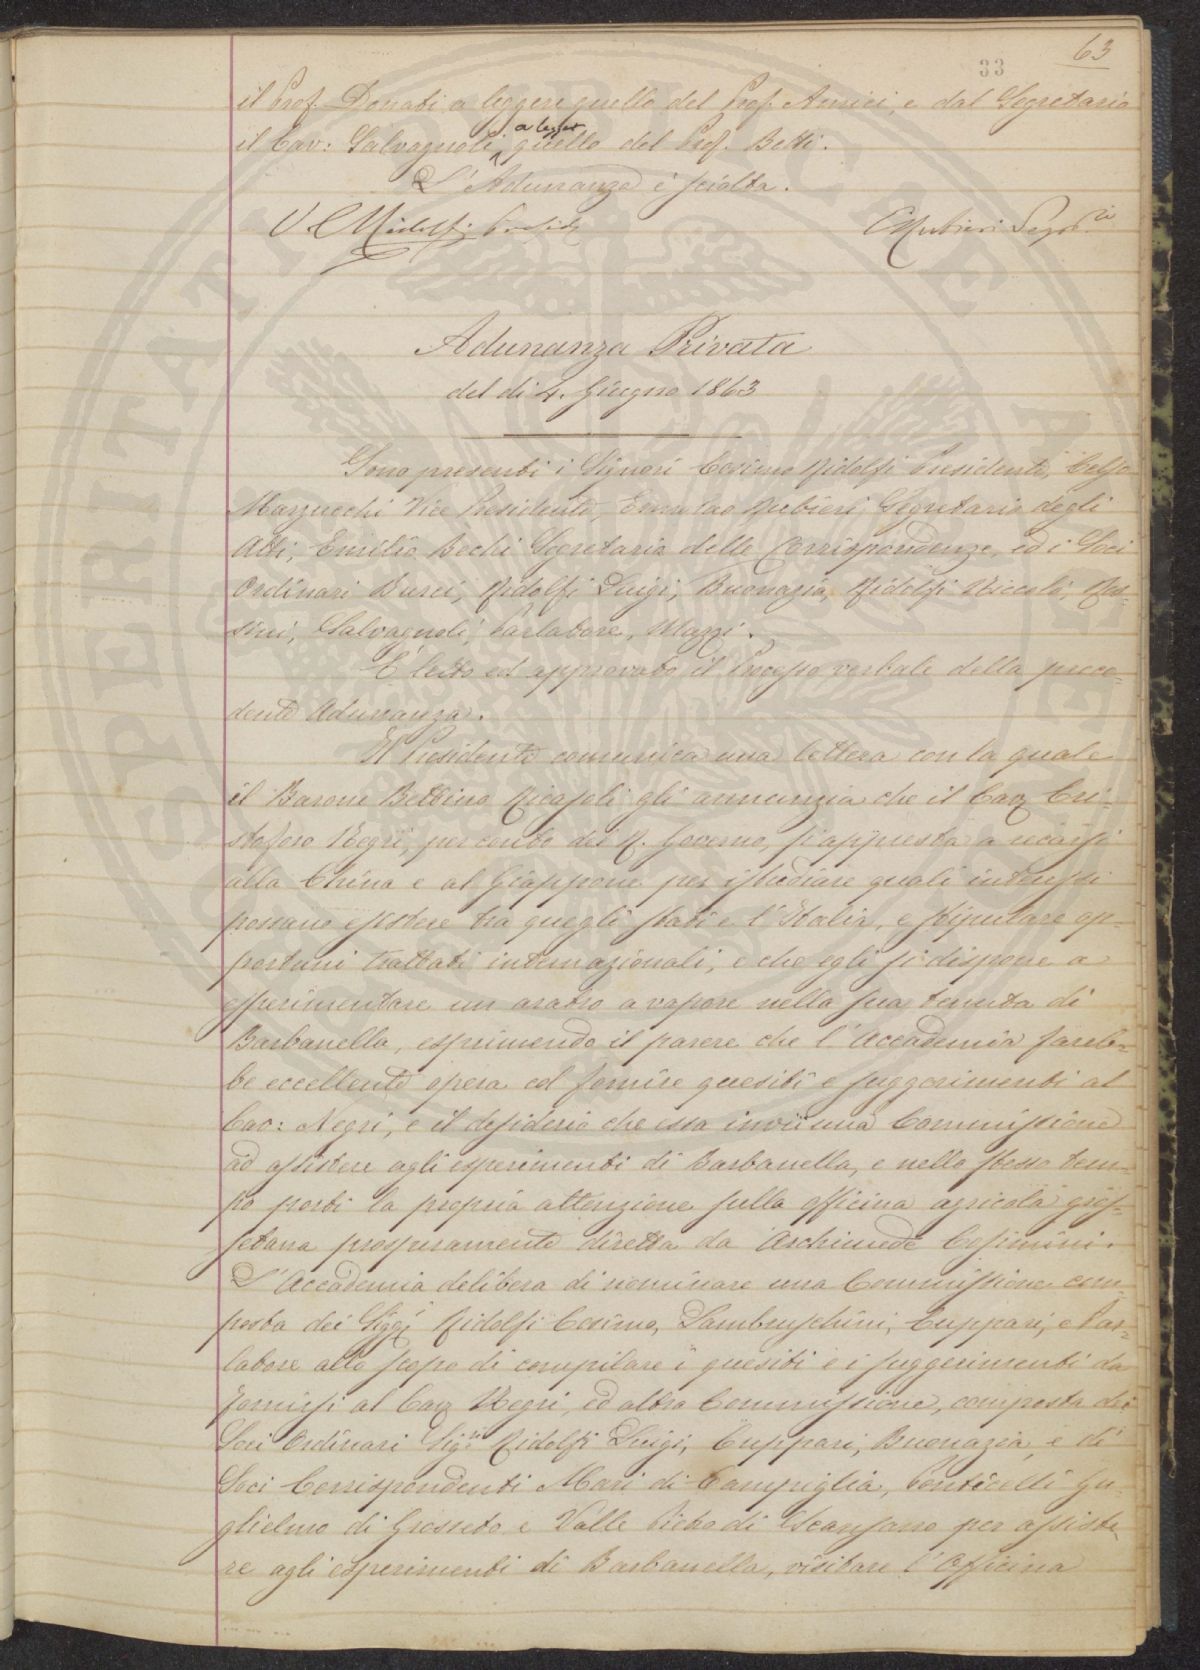 63
33
il Prof. Donati a leggere quello del Prof. Amici, e dal Segretario
a legger
il Cav: Salvagnoli, quello del Prof. Betti.
L'Adunanza è sciolta.
C Ridolfi Presidte
E Rubieri Segr.rio
Adunanza Privata
del dì 4. Giugno 1863
Sono presenti i Signori Cosimo Ridolfi Presidente, Celso
Marzucchi Vice Presidente, Ermolao Rubieri Segretario degli
Atti, Emilio Bechi Segretario delle Corrispondenze, ed i Soci
Ordinari Bursi, Ridolfi Luigi, Buonazia, Ridolfi Niccolò, Ros-
sini, Salvagnoli, Parlatore, Mazzi.
È letto ed approvato il Processo verbale della prece-
dente Adunanza.
Il Presidente comunica una lettera con la quale
il Barone Bettino Ricasoli gli annunzia che il Cav Cri-
stoforo Negri, per conto del R. Governo, s'appresta a recarsi
alla China e al Giappone per istudiare quali interessi
possano esistere tra quegli stati e l'Italia, e stipulare op-
portuni trattati internazionali, e che egli si dispone a
esperimentare un aratro a vapore nella sua tenuta di
Barbanella, esprimendo il parere che l'Accademia fareb-
be eccellente opera col fornire quesiti e suggerimenti al
Cav: Negri, e il desiderio che essa invii una Commissione
ad assistere agli esperimenti di Barbanella, e nello stesso tem-
po porti la propria attenzione sulla officina agricola gros-
setana prosperamente diretta da Archimede Cosimini.
L'Accademia delibera di nominare una Commissione com-
posta dei Sigg.i Ridolfi Cosimo, Lambruschini, Cuppari, e Par-
latore allo scopo di compilare i quesiti e i suggerimenti da
fornirsi al Cav Negri, ed altra Commissione, composta dei
Soci Ordinari Sig.ri Ridolfi Luigi, Cuppari, Buonazia, e di
Soci Corrispondenti Mari di Campiglia, Ponticelli Gu-
glielmo di Grosseto e Valle Pietro di Scansano per assiste-
re agli esperimenti di Barbanella, visitare l'Officina